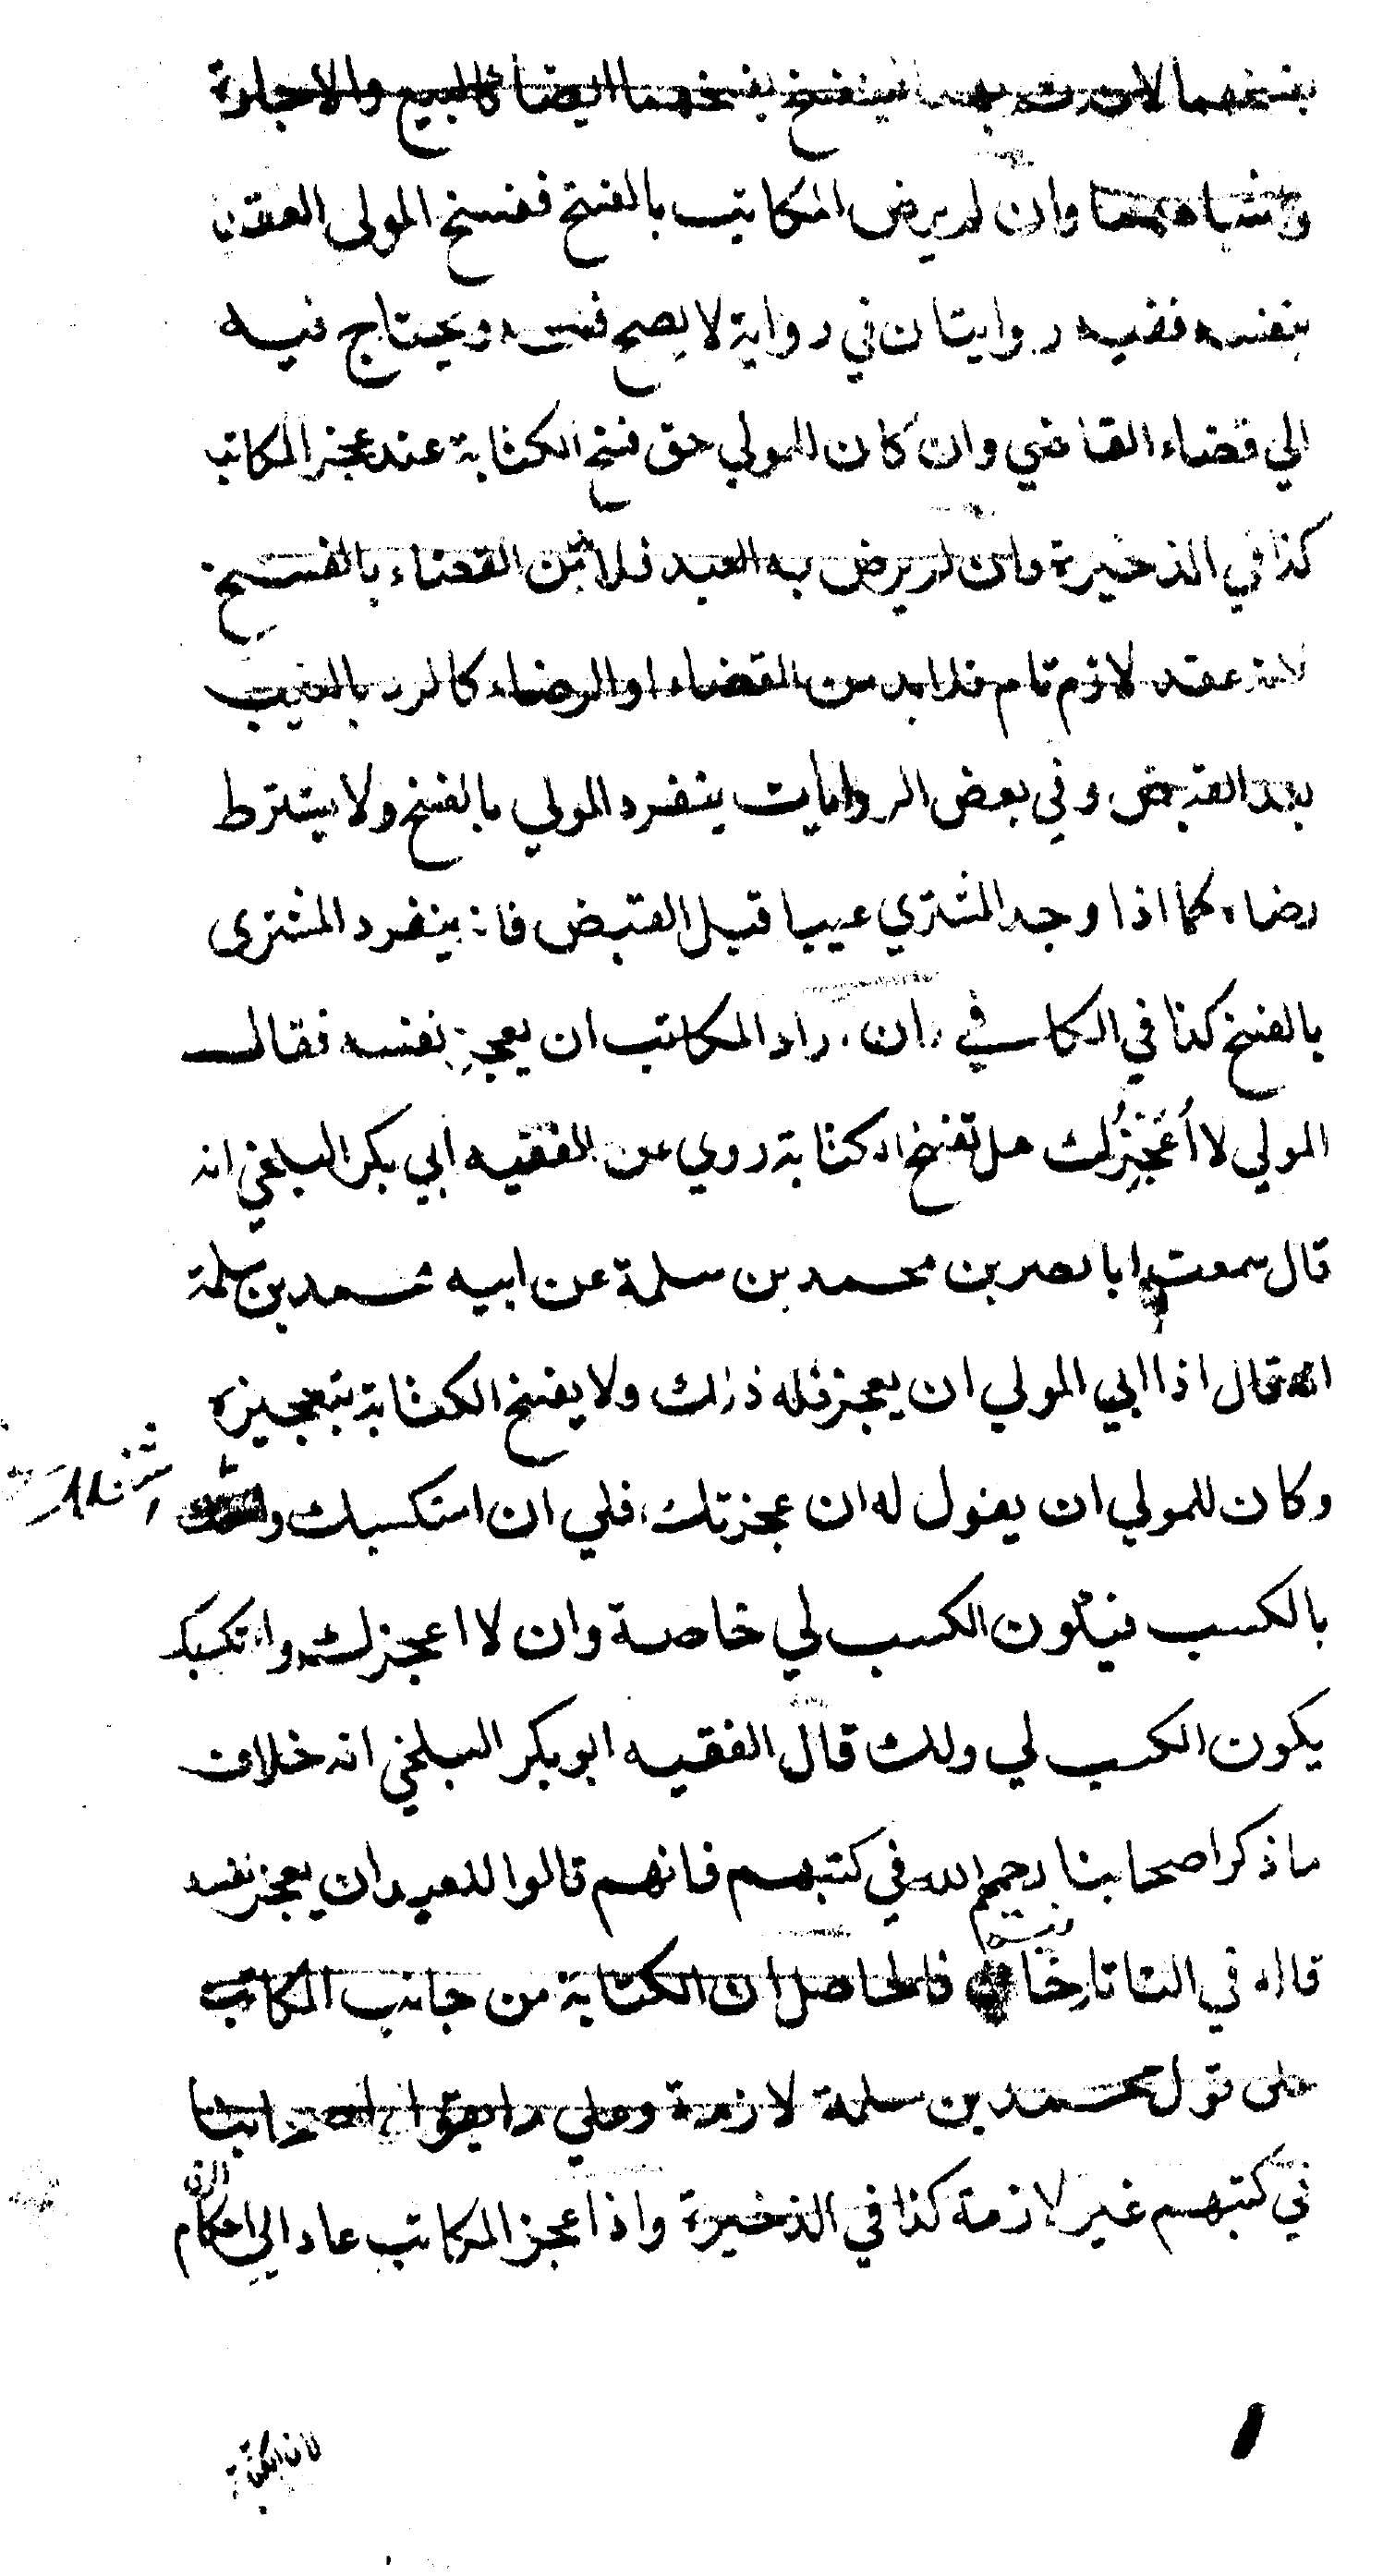 بفسخهما لان ثبوته بهما فينفسخ بفسخهما ايضا كالبيع والاجارة
واشباههما وان لم يرض المكاتب بالفسخ ففسخ المولى العقد
بنفسه ففيه روايتان في رواية لا يصح فسخه ويحتاج فيه
الي قضاء القاضي وان كان للمولي حق فسخ الكتابة عند عجز المكاتب
كذا في الذخيرة وان لم يرض به العبد فلا بد من القضاء بالفسخ
لانه عقد لازم تام فلا بد من القضاء او الرضاء كالرد بالعيب
بعد القبض وفي بعض الروايات ينفرد المولي بالفسخ ولا يشترط
رضاه كما اذا وجد المشتري عيبا قبل القبض فانه ينفرد المشترى
بالفسخ كذا في الكافي وان اراد المكاتب ان يعجز نفسه فقال
المولي لا أُعَجِّزُك هل تفسخ الكتابة روي عن الفقيه ابي بكر البلخي انه
قال سمعت ابا نصر بن محمد بن سلمة عن ابيه محمد بن سلمة
انه قال اذا ابي المولي ان يعجز فله ذلك ولا يفسخ الكتابة بتعجيزه
وكان للمولي ان يقول له ان عجزتك فلي ان استكسبك
بالكسب فيكون الكسب لي خاصة وان لا اعجزك واستكسبك
يكون الكسب لي ولك قال الفقيه ابو بكر البلخي انه خلاف
ما ذكر اصحابنا رحمهم الله في كتبهم فانهم قالوا للعبد ان يعجز نفسه
قاله في التاتارخانية فالحاصل ان الكتابة من جانب المكاتب
على قول محمد بن سلمة لازمة وعلي ما يقوله اصحابنا
في كتبهم غير لازمة كذا في الذخيرة واذا عجز المكاتب عاد الي احكام الرق
لان الكتابة